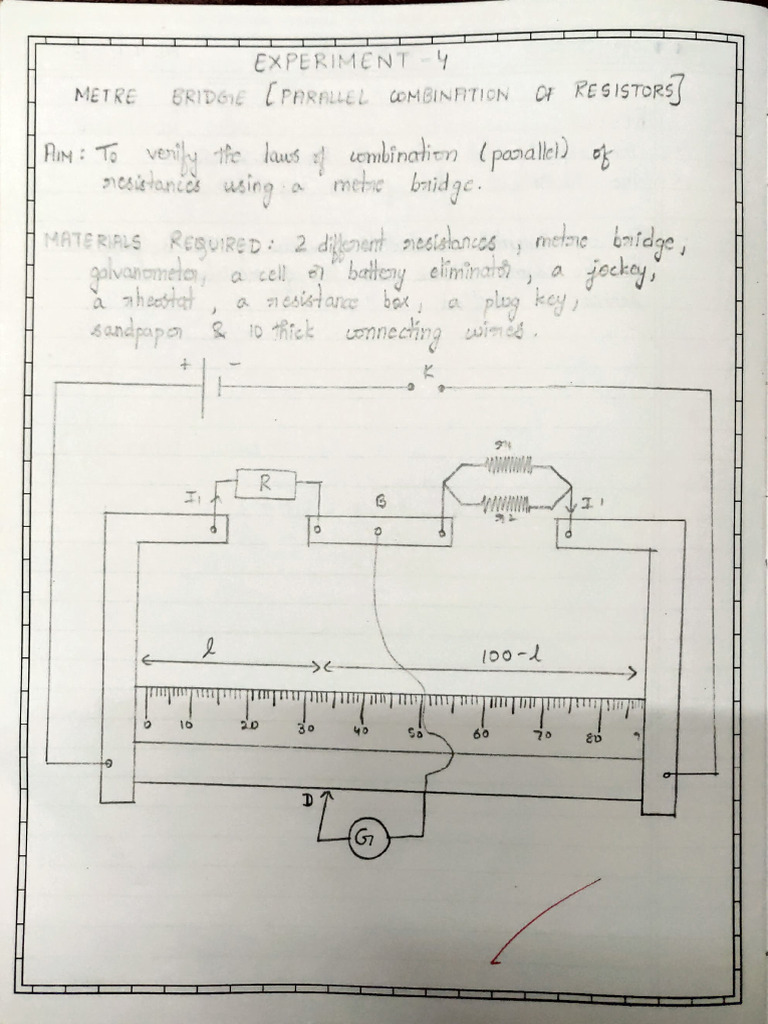 EXPERIMENT - 4
METRE BRIDGE [PARALLEL COMBINATION OF RESISTORS]
AIM : To verify the laws of combination (parallel) of
resistances using a metre bridge.
MATERIALS REQUIRED : 2 different resistances, metre bridge,
galvanometer, a cell or battery eliminator, a jockey,
a rheostat, a resistance box, a plug key,
sandpaper & 10 thick connecting wires.
+ - K
r1
I1 R B r2 I'
l 100-l
0 10 20 30 40 50 60 70 80 9
D G